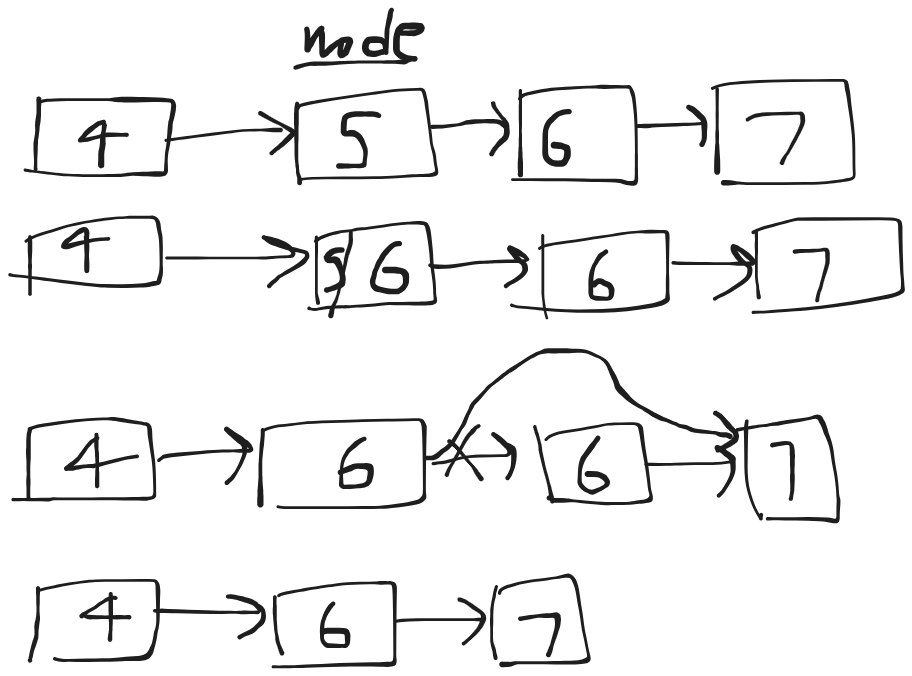 node
4 5 6 7
4 5 6 6 7
4 6 6 7
4 6 7